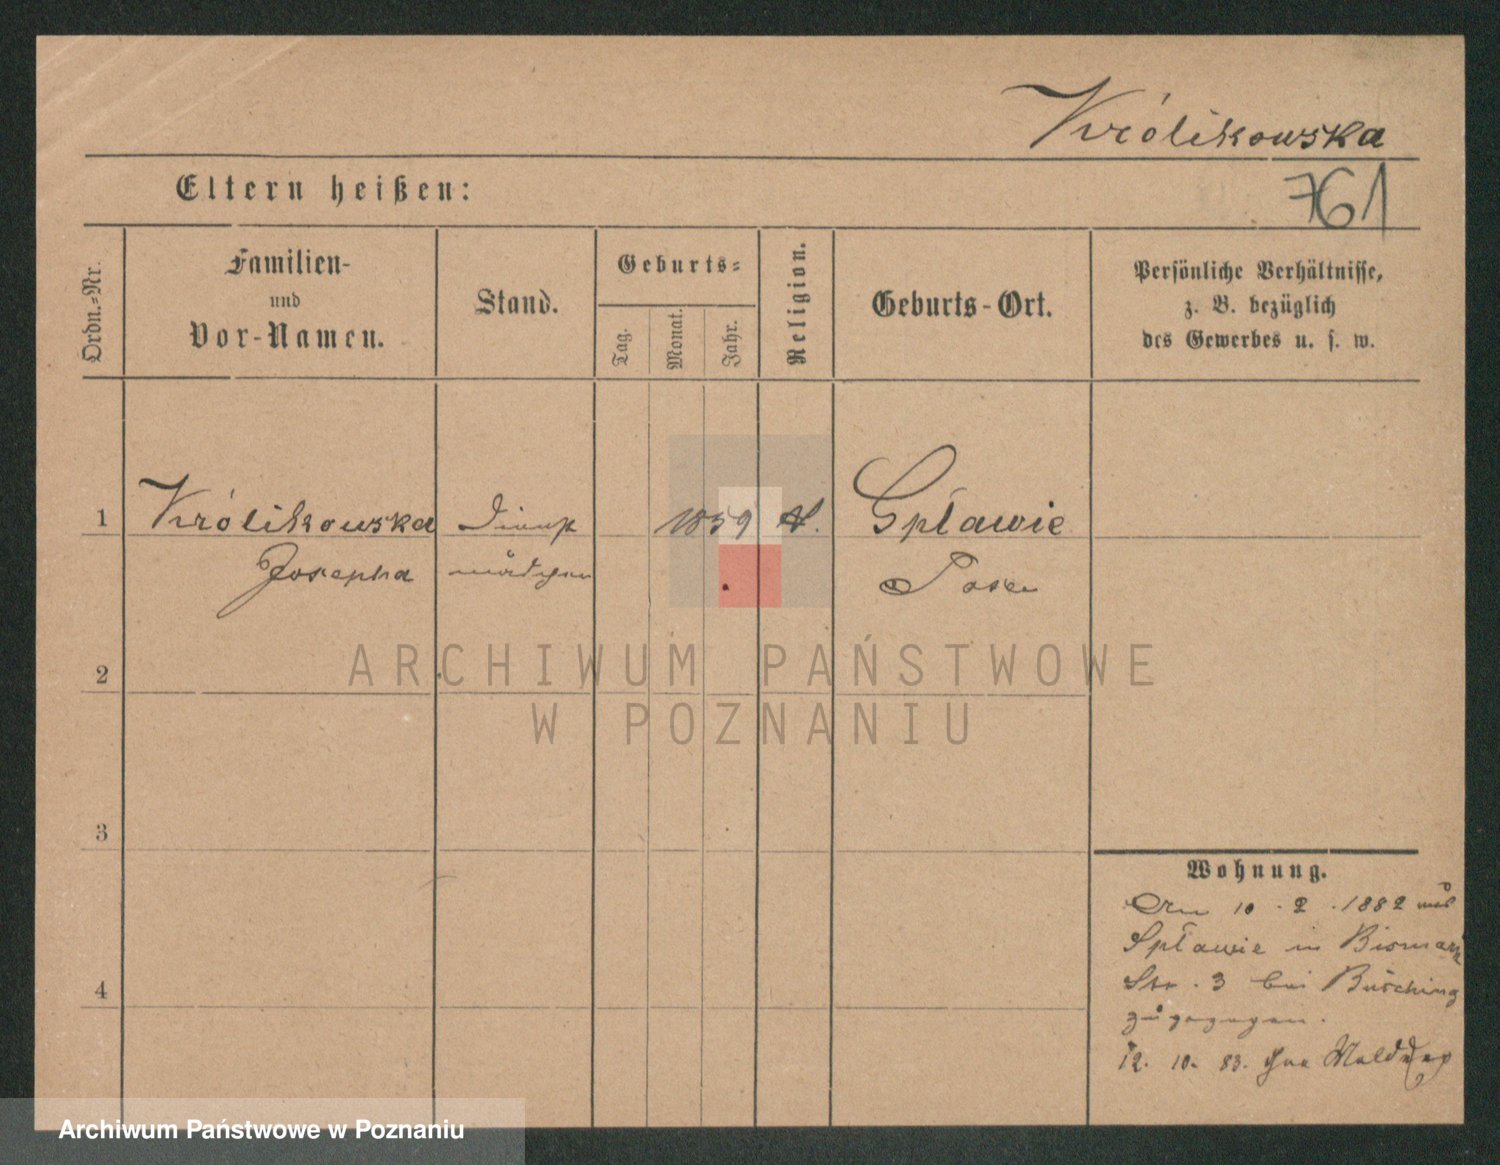 Królikowska
Eltern heißen:
761
Ordn.-Nr.
Familien-
und
Vor-Namen.
Stand.
Geburts-
Tag.
Monat.
Jahr.
Religion.
Geburts-Ort.
Persönliche Verhältnisse,
z. B. bezüglich
des Gewerbes u. s. w.
1 Królikowska Dienst 1859 Spławie
Josepha mädchen Posen
ARCHIWUM PAŃSTWOWE
W POZNANIU
2
3
4
Wohnung.
Den 10. 2. 1882 aus
Spławie in Bismark
Str. 3 bei Büsching
zugezogen.
12. 10. 83. Meldung
Archiwum Państwowe w Poznaniu